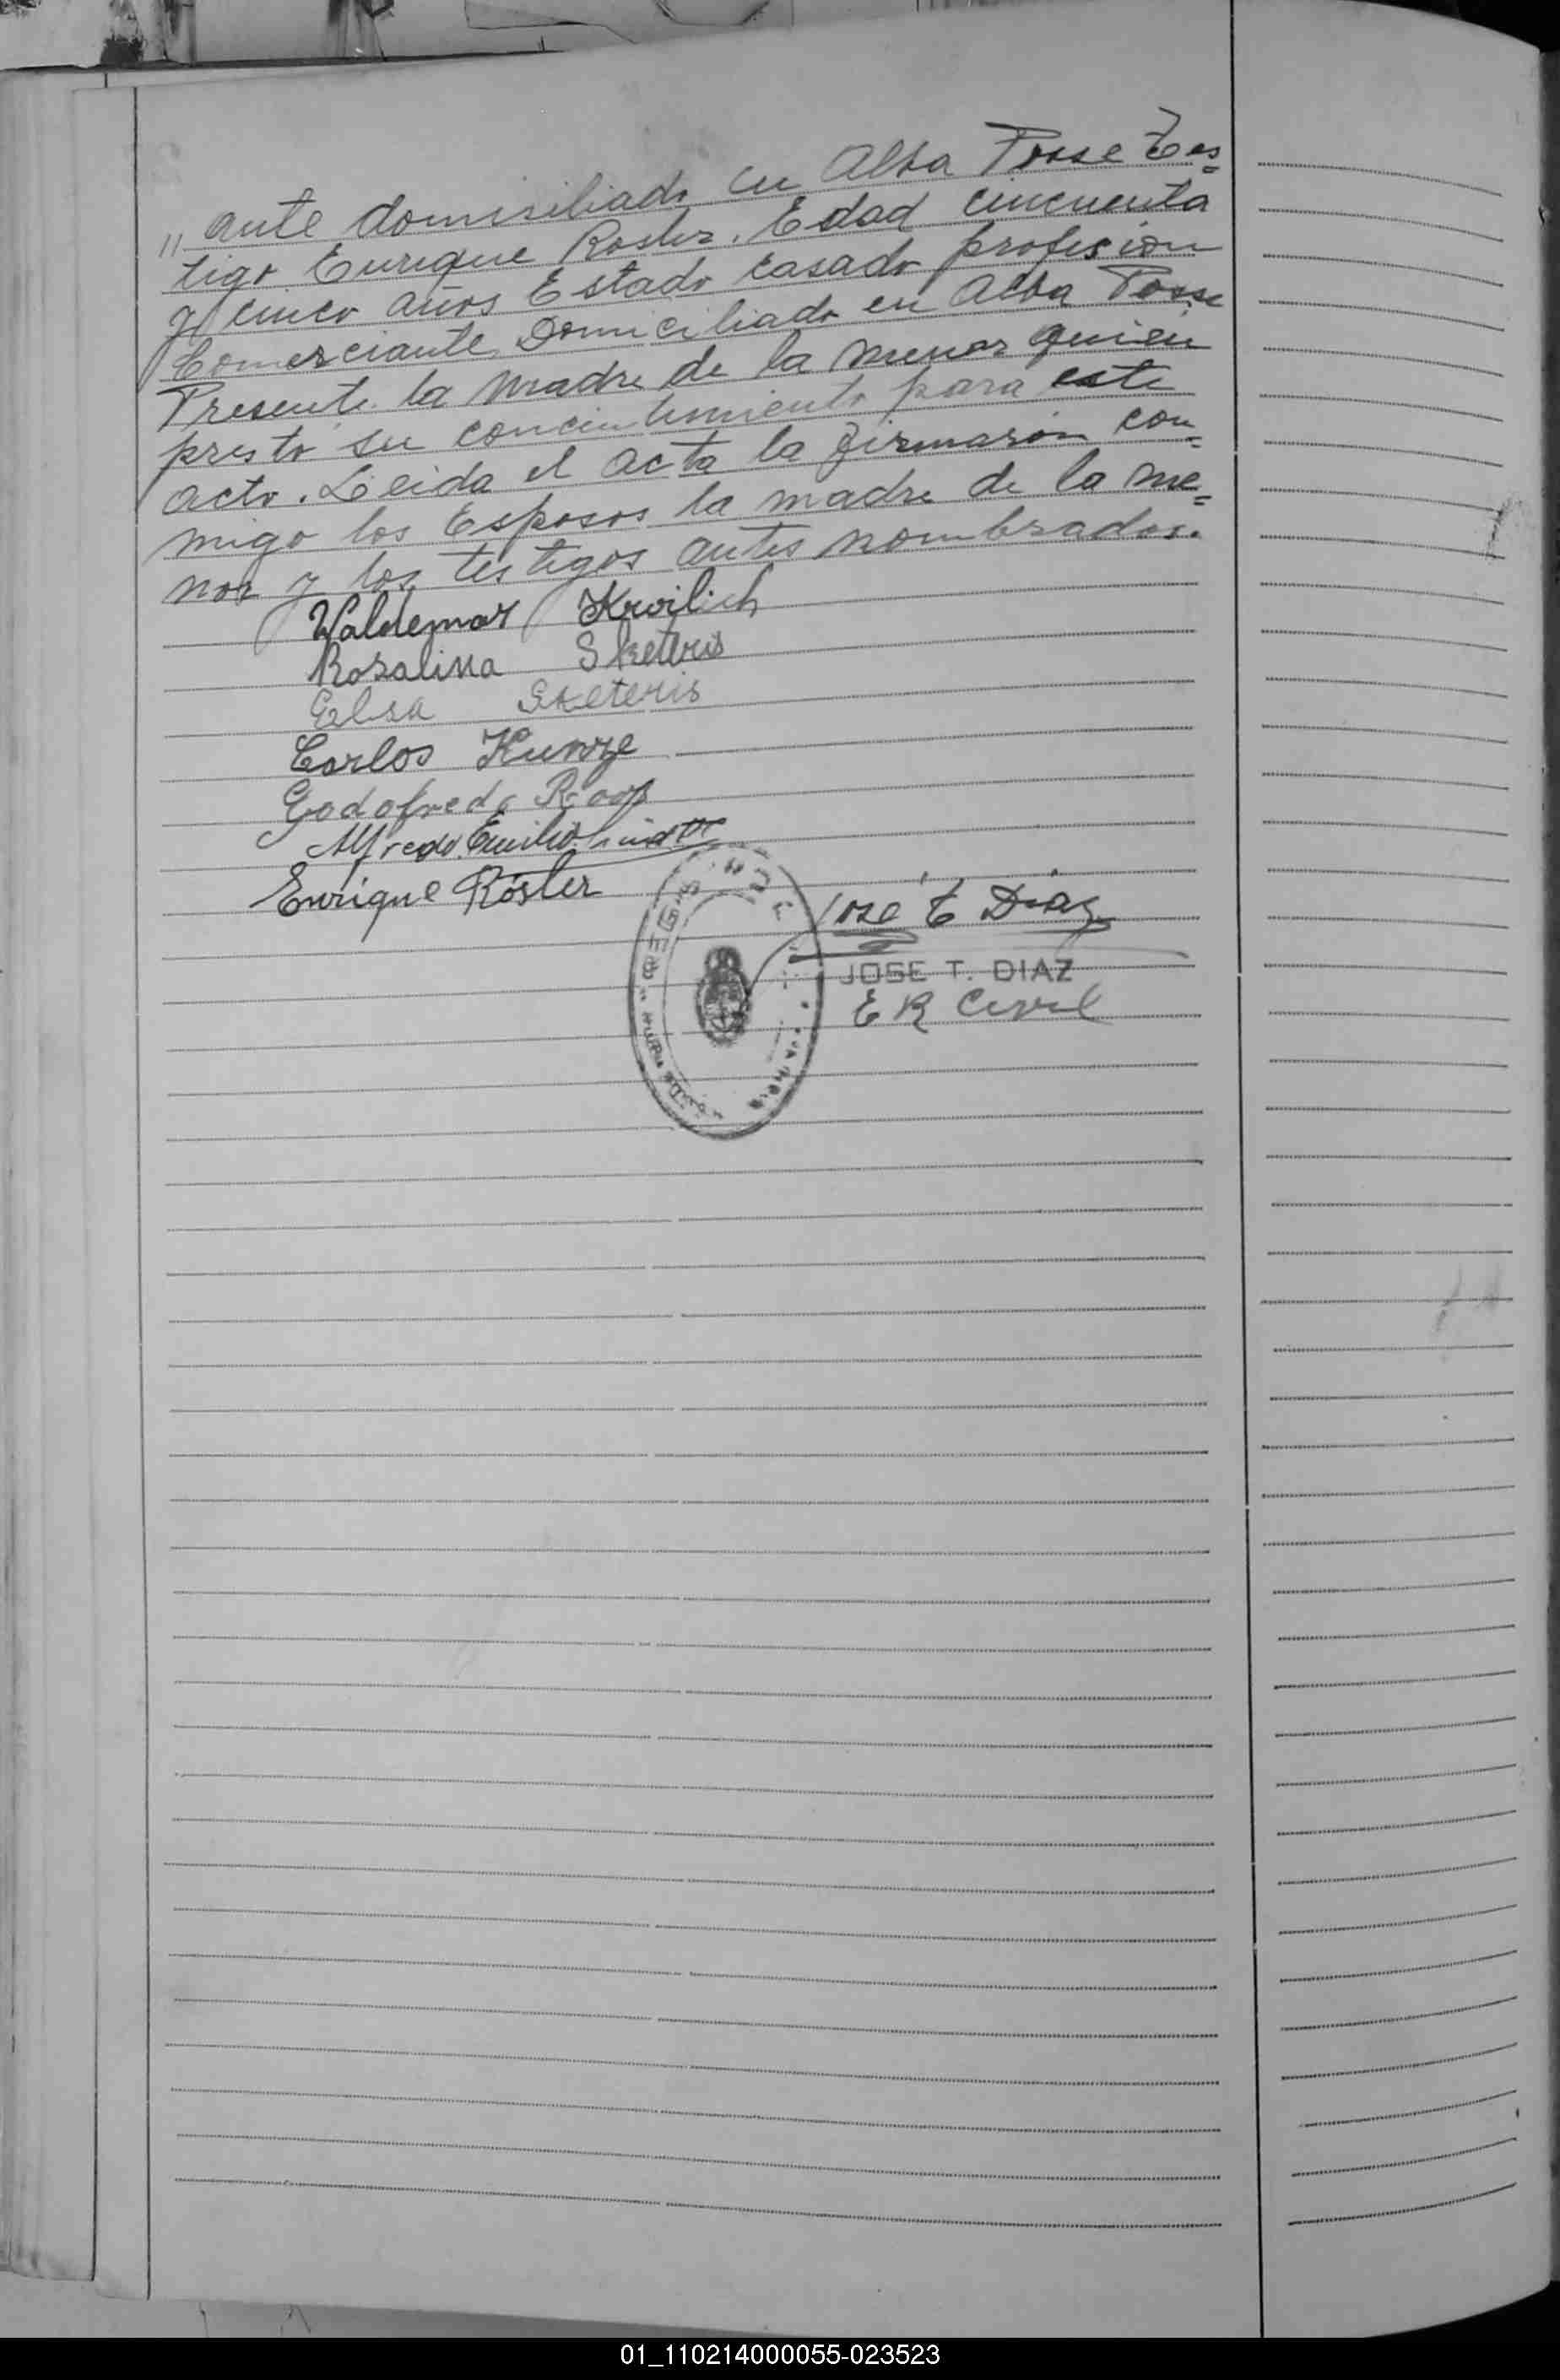 „ ante domisiliado en Alba Posse Tes=
tigo Enrique Rosler. Edad cincuenta
y cinco años Estado casado profesion
Comerciante Domiciliado en Alba Posse
Presente la madre de la menor quien
presto su concentimiento para este
acto. Leida el acta la firmaron con=
migo los Esposos la madre de la me=
nor y los testigos antes nombrados.
Waldemar Kroilich
Rosalina Sketeris
Elsa Sketeris
Carlos Kunze
Godofredo Roop
Alfredo Emilio
Enrique Rösler
José T Diaz
JOSE T. DIAZ
E R Civil
01_110214000055-023523